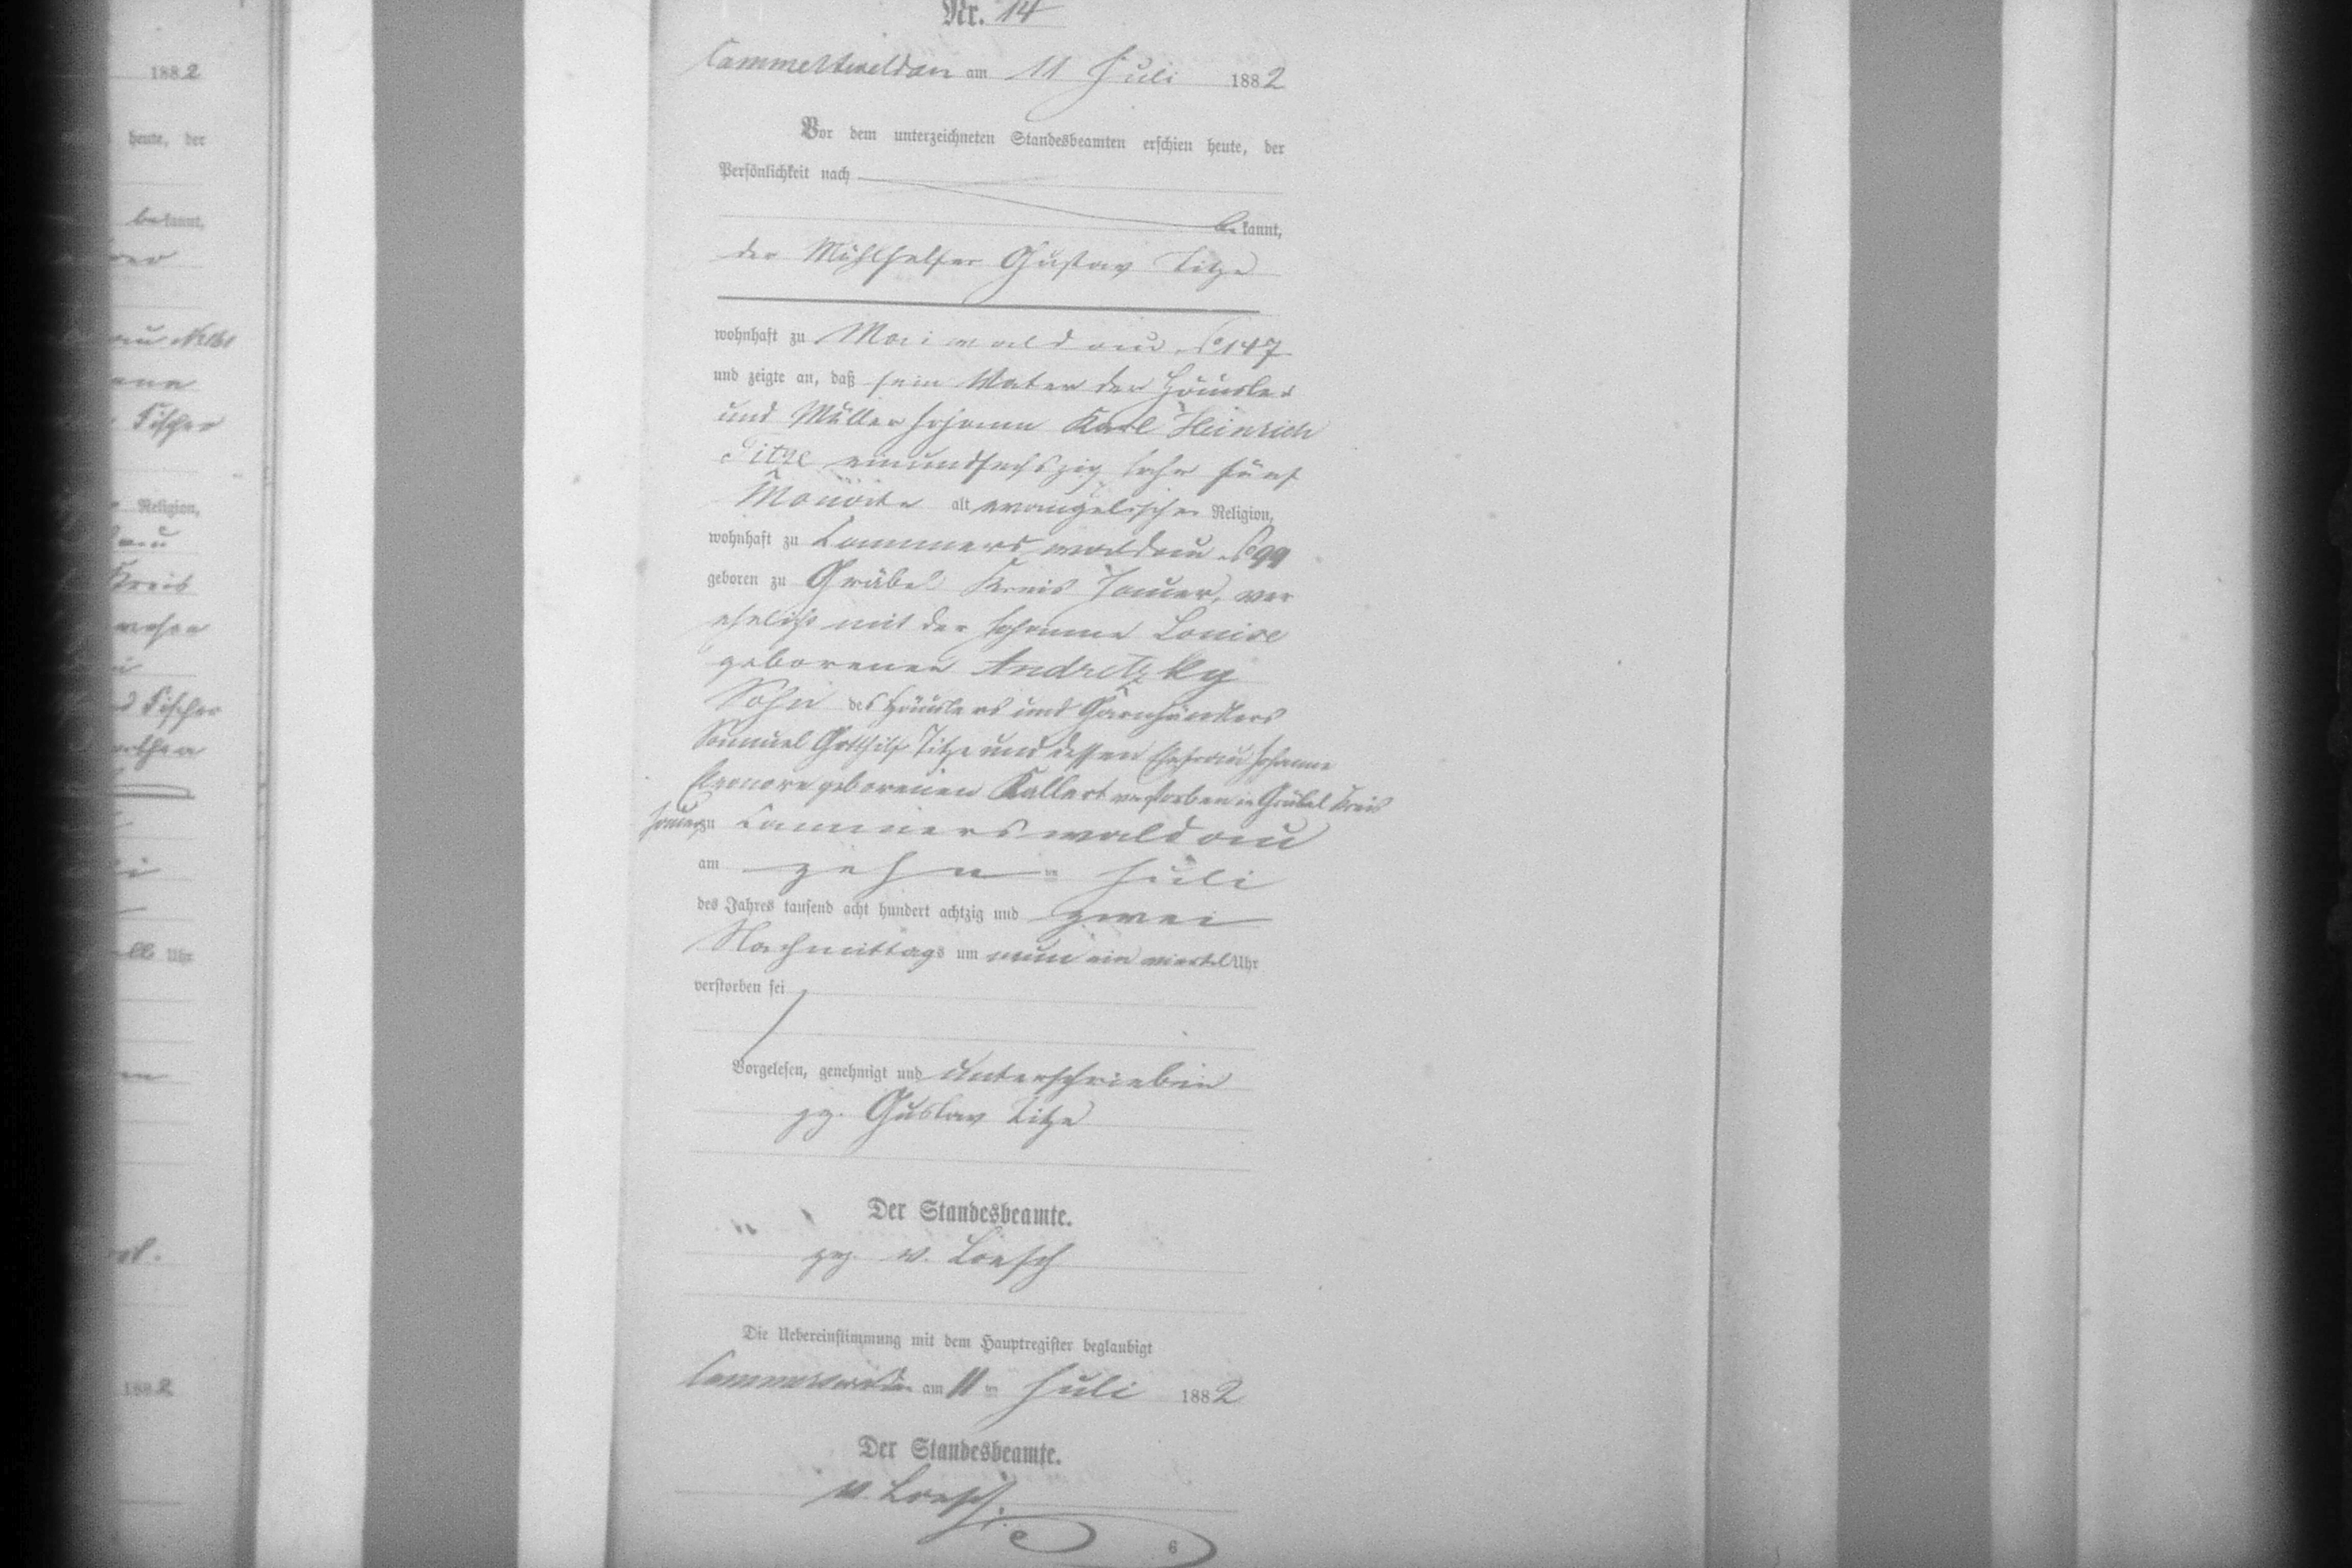 Nr. 14
Cammerswaldau am 11 Juli 1882
Vor dem unterzeichneten Standesbeamten erschien heute, der
Persönlichkeit nach
be kannt,
der Mühlhelfer Gustav Titze
wohnhaft zu Maiwaldau No 147
und zeigte an, daß sein Vater der Häusler
und Müller Johann Karl Heinrich
Titze einundsechszig Jahr fünf
Monate alt evangelischer Religion,
wohnhaft zu Cammerswaldau No 99
geboren zu Gräbel Kreis Jauer, ver
ehelicht mit der Johanne Louise
geborenen Andretzky
Sohn des Häuslers und Garnhändlers
Samuel Gotthilf Titze und dessen Ehefrau Johanne
Eleonore geborenen Kallert verstorben in Gräbel Kreis
Jauer zu Cammerswaldau
am zehn ten Juli
des Jahres tausend acht hundert achtzig und zwei
Nachmittags um neun ein viertel Uhr
verstorben sei
Vorgelesen, genehmigt und unterschrieben
gz. Gustav Titze
Der Standesbeamte.
gez. v. Loesch
Die Uebereinstimmung mit dem Hauptregister beglaubigt
Cammerswaldau am 11 ten Juli 1882
Der Standesbeamte.
v. Loesch.
6
1882
heute, der
be kannt,
Fischer
Religion,
Kreis
Fischer
Uhr
1882